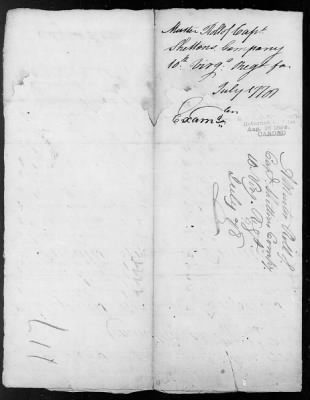 Muster Roll of Capt
Sheltons Company
10th Virga Regt for
July 1778
Examd
A Muster Roll of
Capt Sheltons Compy
10 Virg Regt
July 78
117